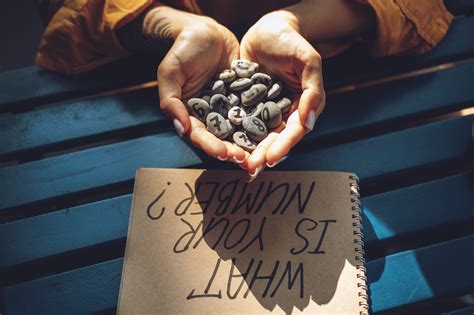 WHAT
IS YOUR
NUMBER?